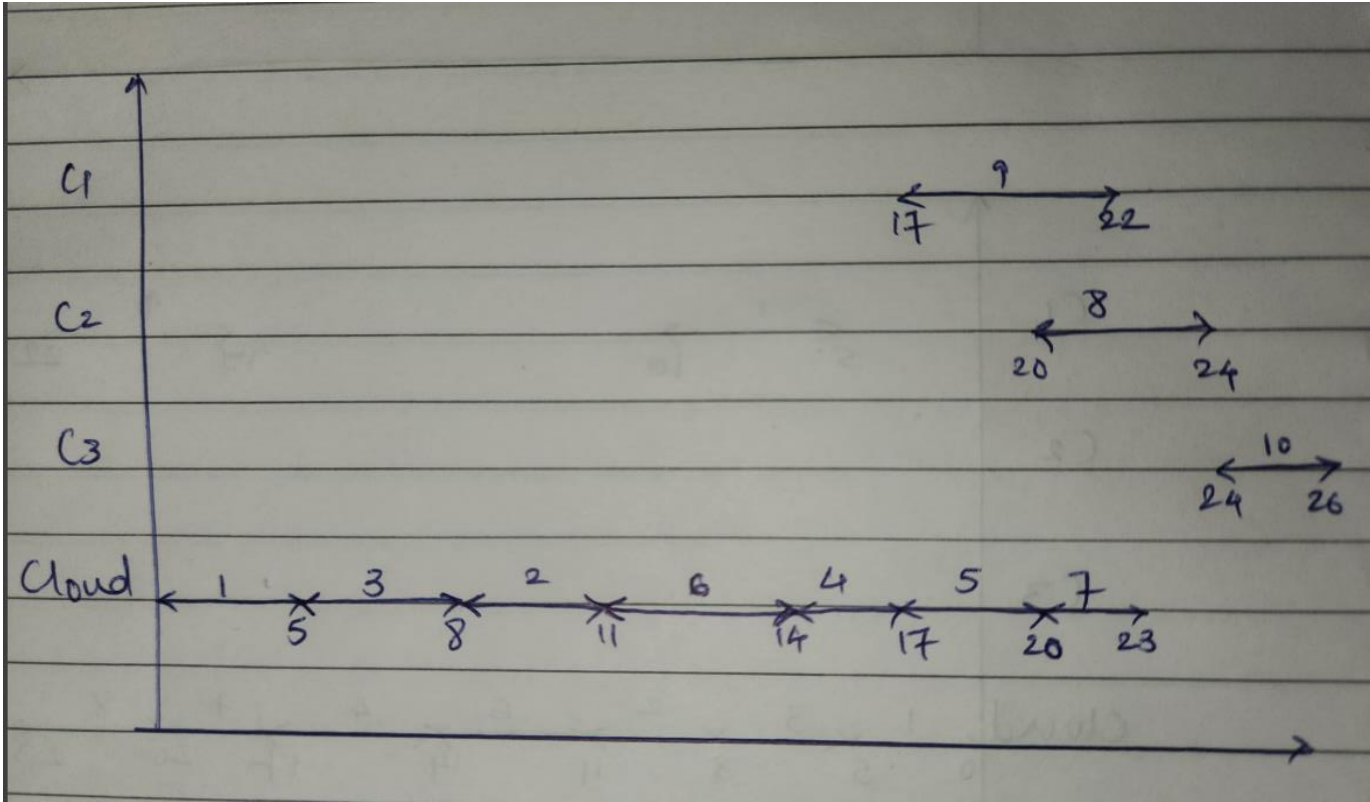 C1 9
17 22
C2 8
20 24
C3 10
24 26
Cloud 1 3 2 6 4 5 7
5 8 11 14 17 20 23